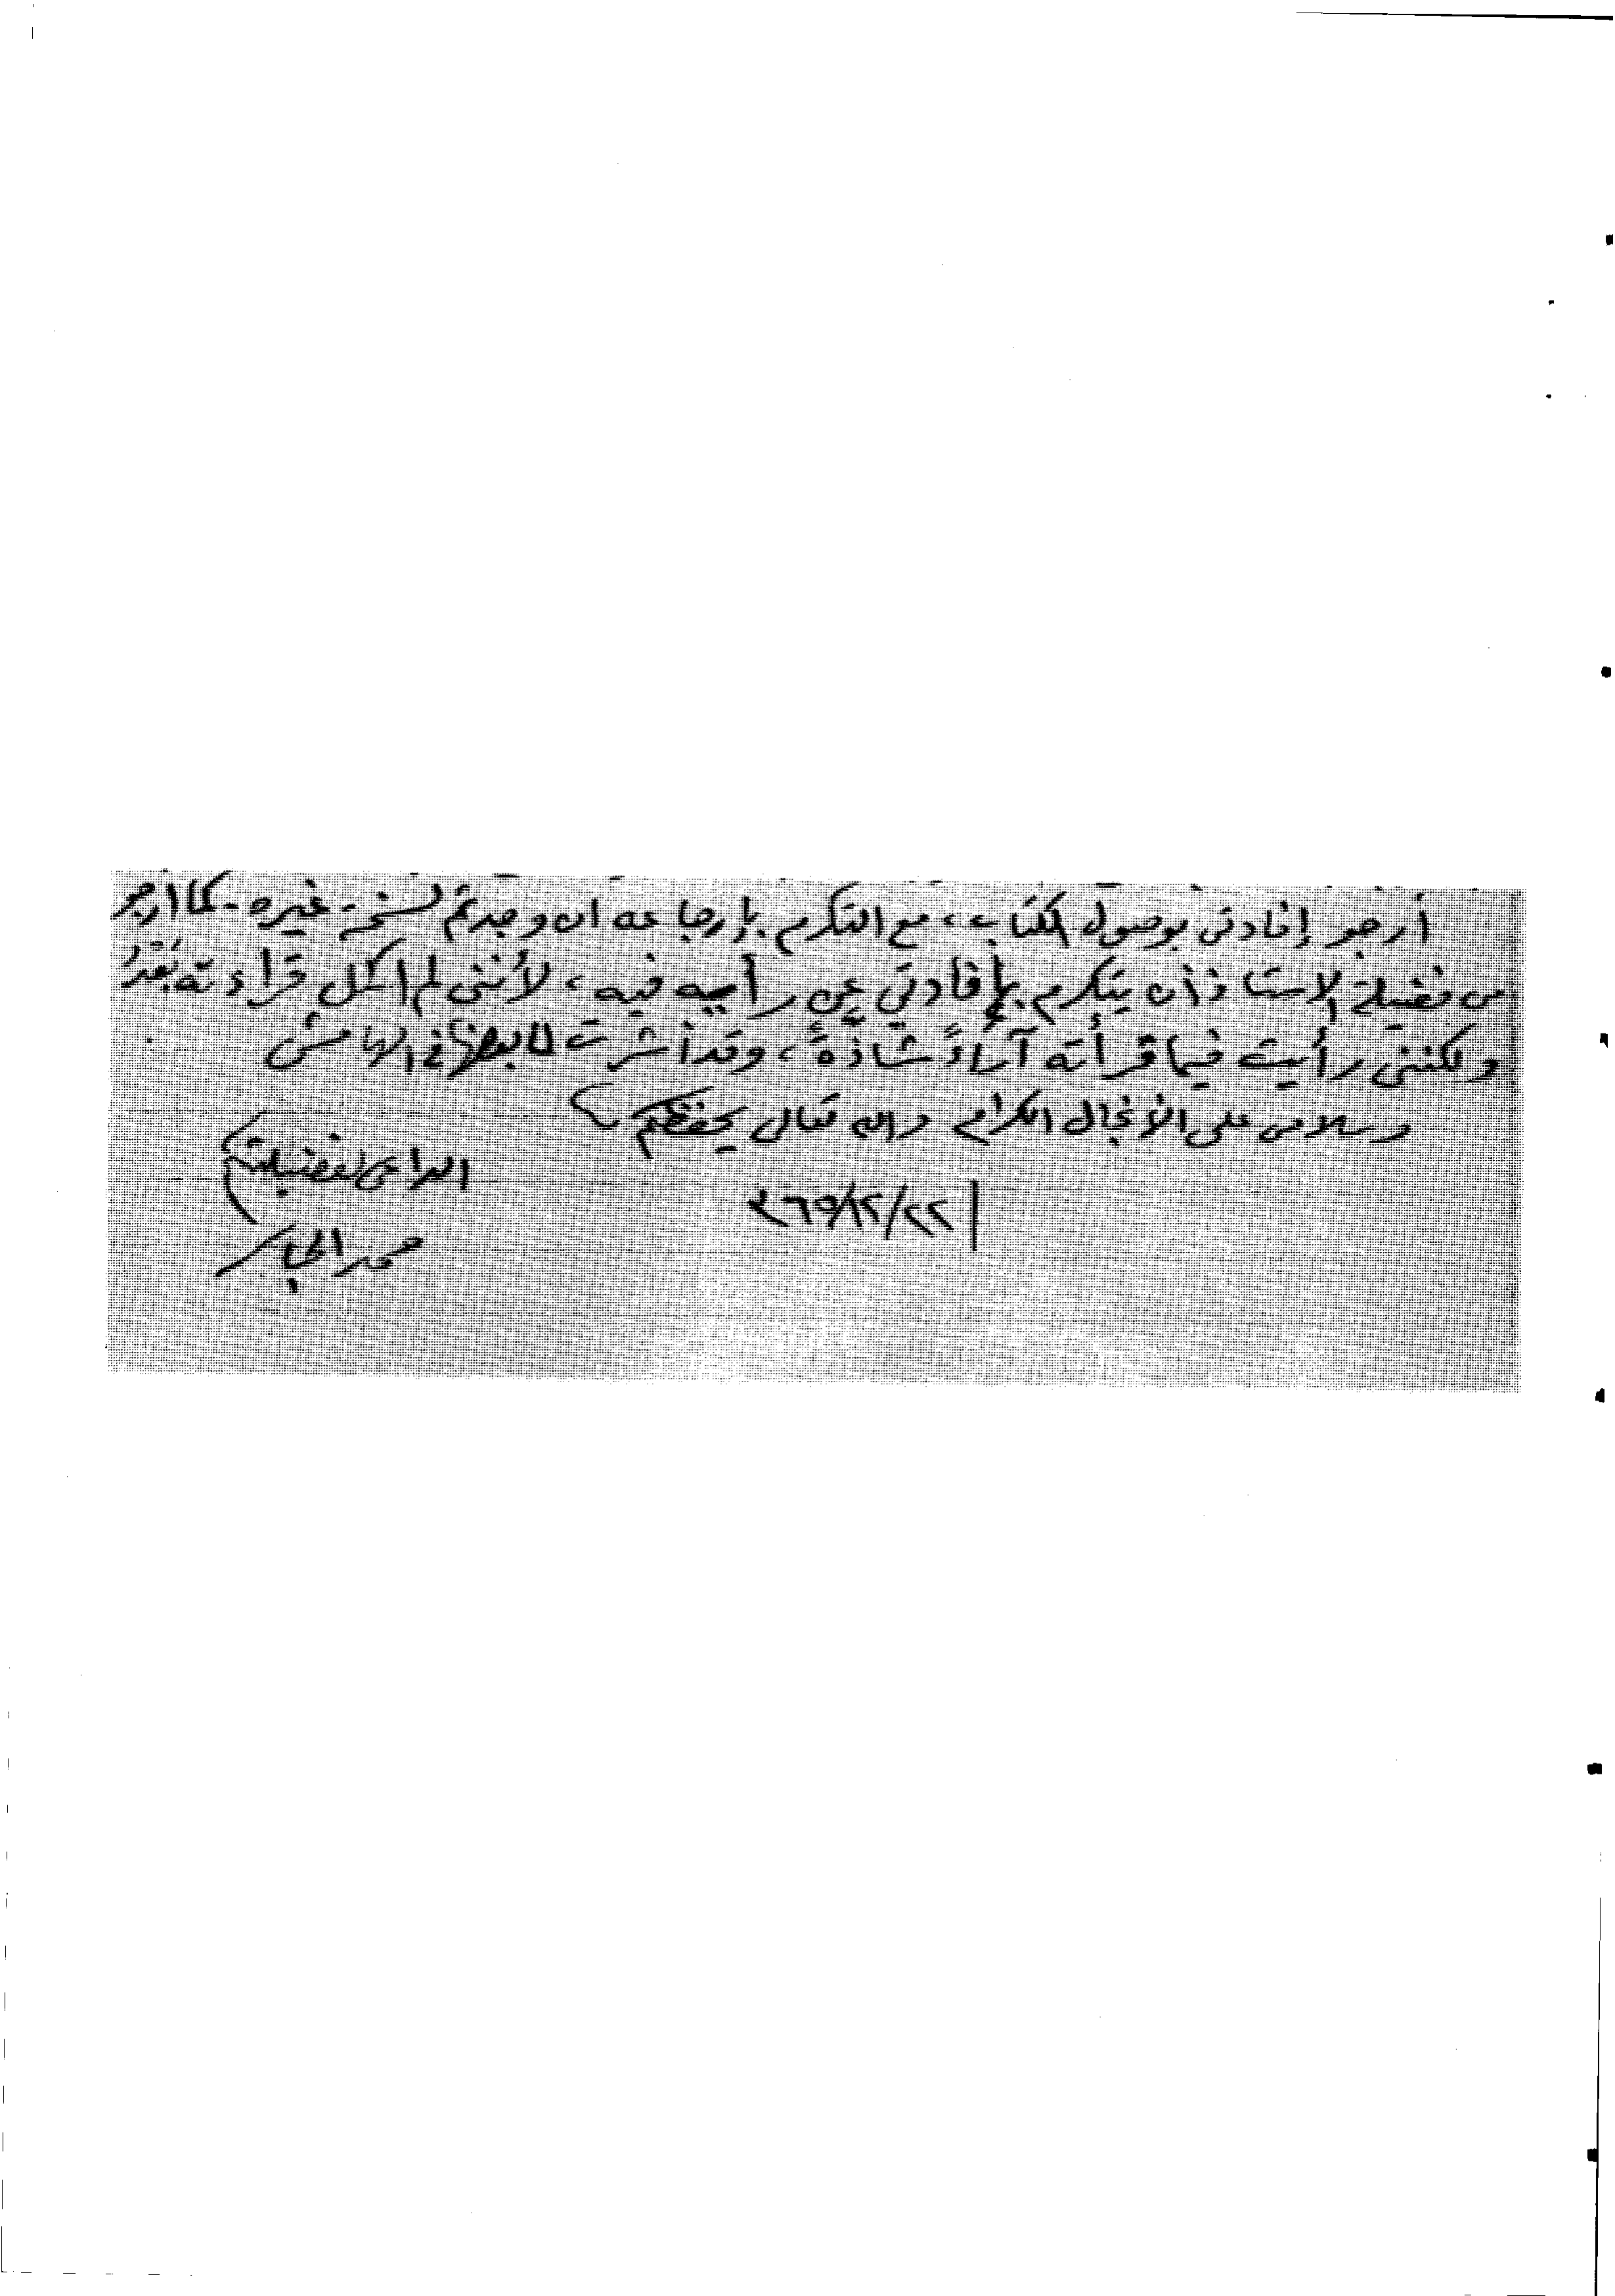 أرجو إفادتي بوصول الكتاب، مع التكرم بإرجاعه ان وجدتم نسخة غيره - كما ارجو
من فضيلة الاستاذ ان يتكرم بإفادتي عن رأيه فيه، لأنني لم اكمل قراءته بعدُ
ولكنني رأيت فيما قرأته آراءً شاذةً، وقد أشرت لا في الهامش
وسلامي على الأنجال الكرام والله تعالى يحفظكم
الداعي لفضيلتكم
محمد